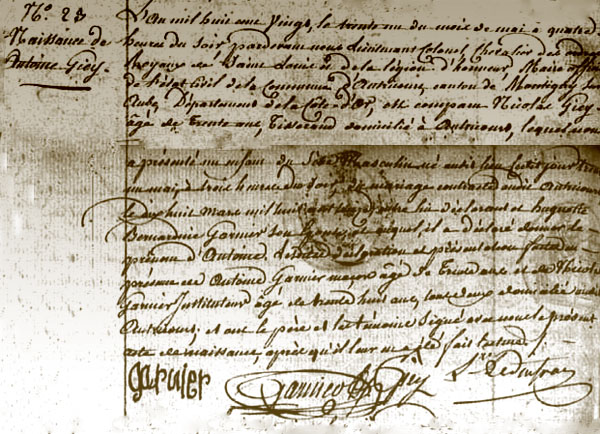 N.º 23
Naissance de
Antoine Giey.
L'an mil huit cent Vingt, le trente un du mois de mai à quatre
heures du soir pardevant nous Lieutenant Colonel, Chevalier des ordres
royaux de Saint Louis & de la légion d'honneur, Maire officier
de l'état civil de la Commune d'Autricourt, canton de Montigny sur
Aube, Département de la Côte d'Or, est comparu Nicolas Giey
âgé de trente ans, Tisserand domicilié à Autricourt, lequel nous
a présenté un enfant du Sexe Masculin né audit lieu cejourd'hui trente
un mai à trois heures du soir, du mariage contracté audit Autricourt
le dix huit Mars mil huit cent entre lui déclarant et Huguette
Bernardine Garnier son épouse, et auquel il a déclaré donner le
prénom d'Antoine. Lesdites déclaration et présentation faites en
présence de Antoine Garnier maçon âgé de Trente ans et de Nicolas
Garnier Instituteur âgé de trente huit ans, tous deux domiciliés audit
Autricourt, et ont le père et les témoins Signé avec nous le présent
acte de naissance, après qu'il leur en a été fait lecture.
garnier
Garnier Giey